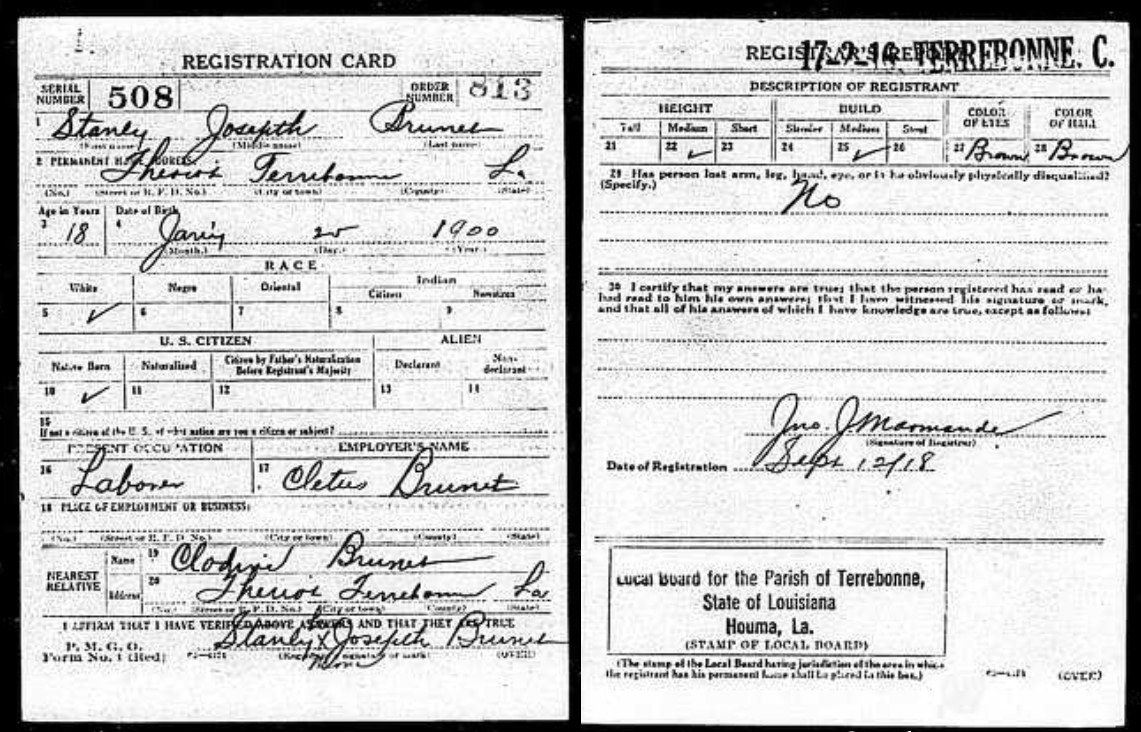 REGISTRATION CARD
SERIAL NUMBER 508 ORDER NUMBER 813
1 Stanly Josepth Brunet
(First name) (Middle name) (Last name)
2 PERMANENT HOME ADDRESS:
Theriot Terrebonne La
(No.) (Street or R. F. D. No.) (City or town) (County) (State)
Age in Years Date of Birth
3 18 4 20 1900
(Month.) (Day.) (Year.)
RACE
White Negro Oriental Indian
Citizen Noncitizen
5 ✓ 6 7 8 9
U. S. CITIZEN ALIEN
Native Born Naturalized Citizen by Father's Naturalization Before Registrant's Majority Declarant Non-declarant
10 ✓ 11 12 13 14
15
If not a citizen of the U. S., of what nation are you a citizen or subject?
PRESENT OCCUPATION EMPLOYER'S NAME
16 Laborer 17 Cletus Brunet
18 PLACE OF EMPLOYMENT OR BUSINESS:
(No.) (Street or R. F. D. No.) (City or town) (County) (State)
NEAREST RELATIVE Name 19 Brunet
Address 20 Theriot Terrebonne La
(No.) (Street or R. F. D. No.) (City or town) (County) (State)
I AFFIRM THAT I HAVE VERIFIED ABOVE ANSWERS AND THAT THEY ARE TRUE
Stanly x Josepth Brunet
P. M. G. O.
Form No. 1 (Red) (Registrant's signature or mark) (OVER)
REGISTRAR'S REPORT 17-2-14 TERREBONNE. C.
DESCRIPTION OF REGISTRANT
HEIGHT BUILD COLOR OF EYES COLOR OF HAIR
Tall Medium Short Slender Medium Stout
21 22 ✓ 23 24 25 ✓ 26 27 Brown 28 Brown
29 Has person lost arm, leg, hand, eye, or is he obviously physically disqualified?
(Specify.) No
30 I certify that my answers are true; that the person registered has read or has
had read to him his own answers; that I have witnessed his signature or mark,
and that all of his answers of which I have knowledge are true, except as follows:
Jno. J Marmande
(Signature of Registrar)
Date of Registration Sept 12/18
Local Board for the Parish of Terrebonne,
State of Louisiana
Houma, La.
(STAMP OF LOCAL BOARD)
(The stamp of the Local Board having jurisdiction of the area in which
the registrant has his permanent home shall be placed in this box.)
(OVER)